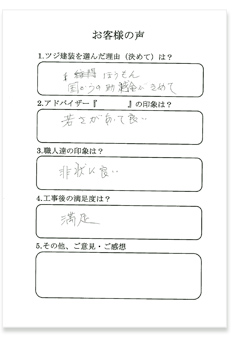 お客様の声
1.ツジ建装を選んだ理由（決めて）は？
国からの補助金が きめて
2.アドバイザー『 』の印象は？
若さがあって良い
3.職人達の印象は？
非常に良い
4.工事後の満足度は？
満足
5.その他、ご意見・ご感想